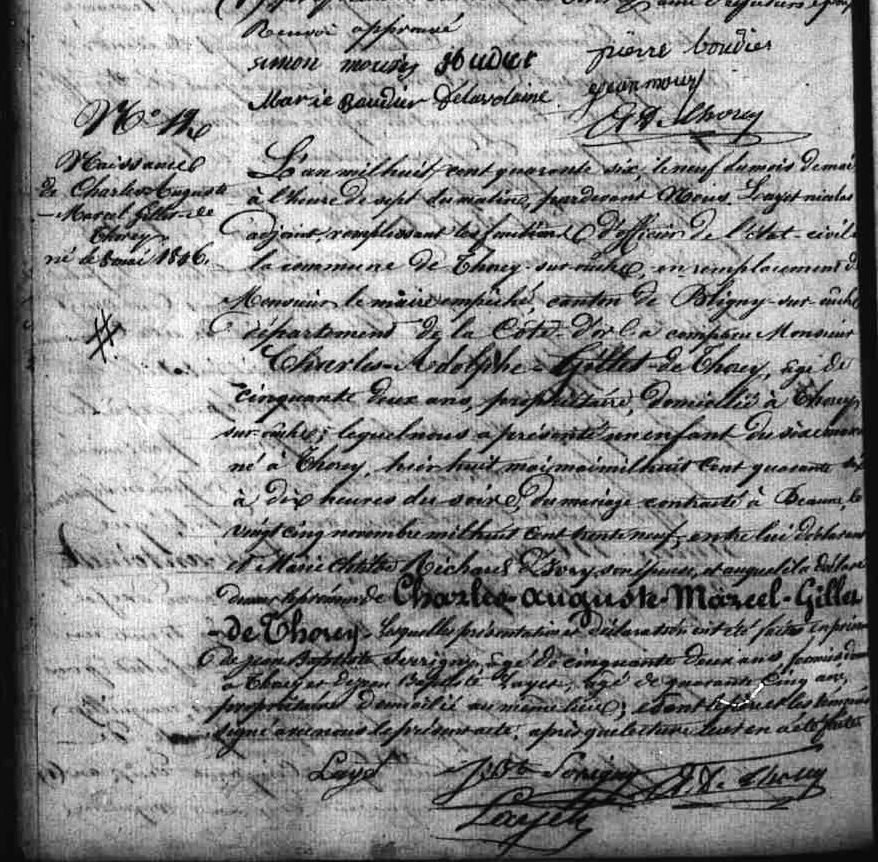 Renvoi approuvé
simon moury Huduc pierre boudier
Marie Baudier Delavolaine jean moury
A De Thorey
N° 12
Naissance
de Charles Auguste
Marcel Gillet de
Thorey
né le 8 mai 1846.
L'an mil huit cent quarante six, le neuf du mois de mai
à l'heure de sept du matin, pardevant Nous, Layet nicolas
adjoint, remplissant les fonctions d'officier de l'état-civil
la commune de Thorey-sur-ouche, en remplacement de
Monsieur le maire empêché, canton de Bligny-sur-ouche
département de la Côte-d'or a comparu Monsieur
Charles-Adolphe-Gillet-de Thorey, âgé de
cinquante deux ans, propriétaire, domicilié à Thorey
sur-ouche; lequel nous a présenté un enfant du sexe
né à Thorey, hier huit mai mil huit cent quarante six
à dix heures du soir, du mariage contracté à Beaune, le
vingt cinq novembre mil huit cent trente neuf, entre lui déclarant
et Marie Richard D'Ivry, son épouse, et auquel il a déclaré
donner le prénom de Charles-auguste-Marcel-Gillet
-de Thorey. Lesquelles présentation et déclaration ont été faites en
de jean Baptiste Serrigny, âgé de cinquante deux ans,
à Thorey et de jean Baptiste Layet, âgé de quarante cinq ans,
propriétaire domicilié au même lieu; et ont le père et les témoins
signé avec nous le présent acte, après que lecture leur en a été faite
Layet JBte Serrigny A. De Thorey
Layet